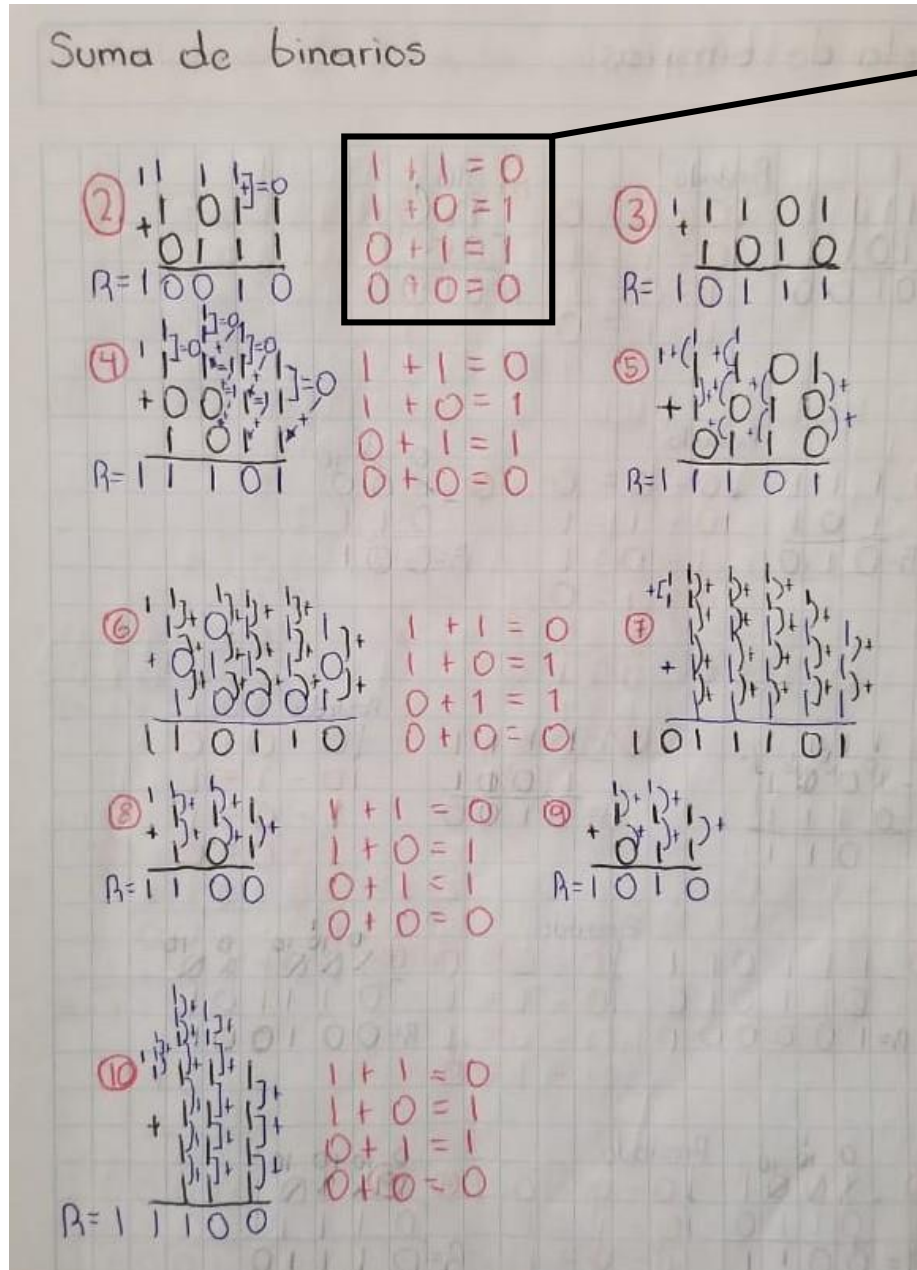 Suma de binarios
②
1 1 1 1 ]=0
1 0 1 1
+ 0 1 1 1
R= 1 0 0 1 0
1 + 1 = 0
1 + 0 = 1
0 + 1 = 1
0 + 0 = 0
③
1 1 1 0 1
+ 1 0 1 0
R= 1 0 1 1 1
④
+ 0 0 1 1
1 0 1 1
R= 1 1 1 0 1
1 + 1 = 0
1 + 0 = 1
0 + 1 = 1
0 + 0 = 0
⑤
1 1 0 1
+ 1 0 1 0
0 1 1 0
R= 1 1 1 0 1
⑥
1 0 1 1 1
+ 0 1 1 1 0
1 0 0 0 1
1 1 0 1 1 0
1 + 1 = 0
1 + 0 = 1
0 + 1 = 1
0 + 0 = 0
⑦
1 0 1 1 1 0 1
⑧
1 1 1
+ 1 0 1
R= 1 1 0 0
1 + 1 = 0
1 + 0 = 1
0 + 1 = 1
0 + 0 = 0
⑨
1 1 1
+ 0 1 1
R= 1 0 1 0
⑩
R= 1 1 1 0 0
1 + 1 = 0
1 + 0 = 1
0 + 1 = 1
0 + 0 = 0